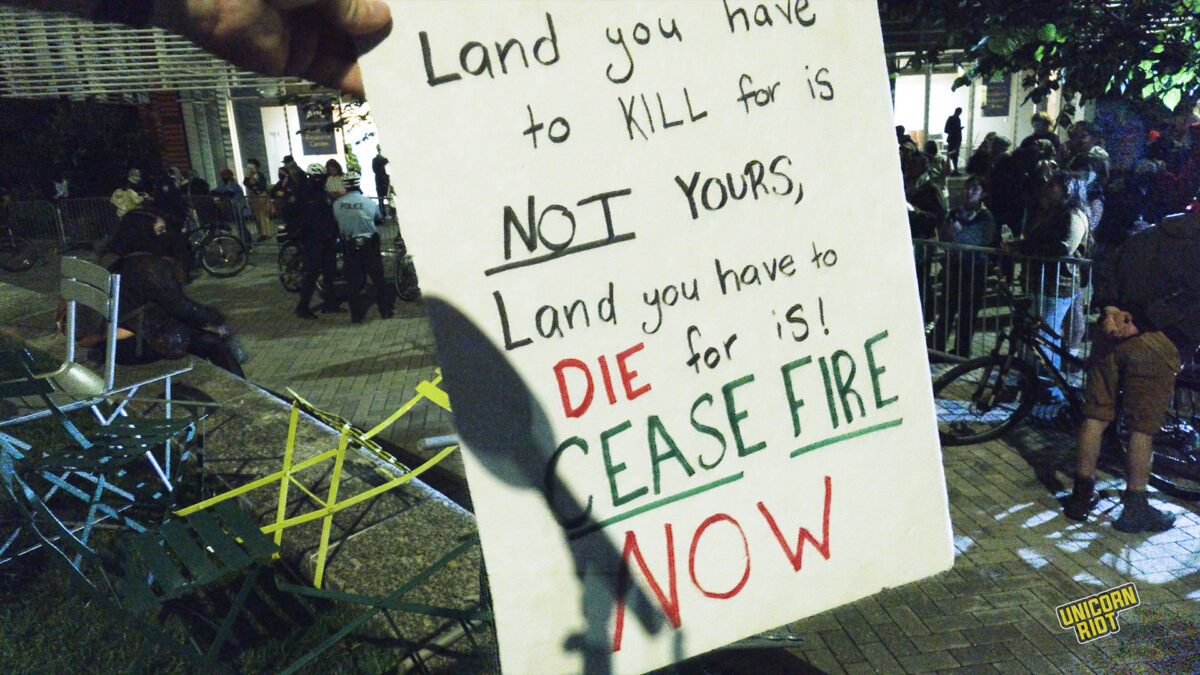 Land you have
to KILL for is
NOT YOURS,
Land you have to
DIE for is!
CEASE FIRE
NOW
POLICE
UNICORN
RIOT